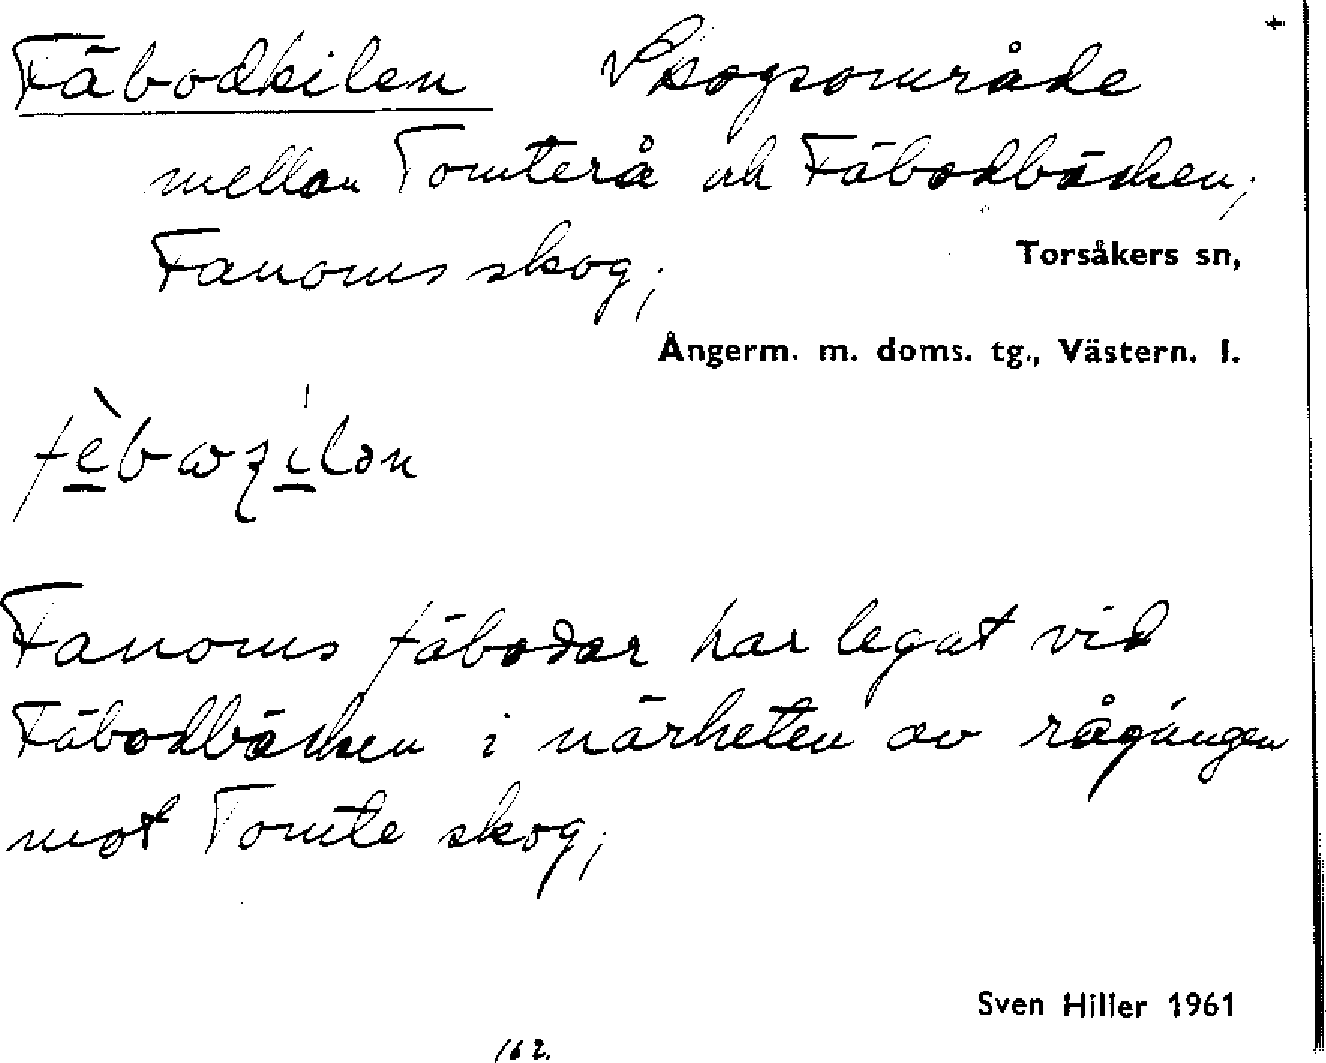 +
Fäbodkilen Skogsområde
mellan Tomterå och Fäbodbäcken;
Fanoms skog;
Torsåkers sn,
Ångerm. m. doms. tg., Västern. l.
Fanoms fäbodar har legat vid
Fäbodbäcken i närheten av rågången
mot Tomte skog;
Sven Hiller 1961
162.